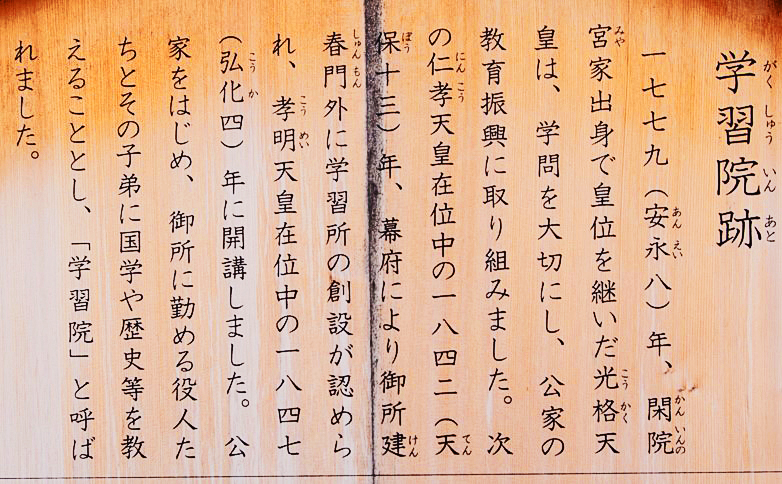 学習院跡
一七七九(安永八)年、閑院
宮家出身で皇位を継いだ光格天
皇は、学問を大切にし、公家の
教育振興に取り組みました。次
の仁孝天皇在位中の一八四二(天
保十三)年、幕府により御所建
春門外に学習所の創設が認めら
れ、孝明天皇在位中の一八四七
(弘化四)年に開講しました。公
家をはじめ、御所に勤める役人た
ちとその子弟に国学や歴史等を教
えることとし、「学習院」と呼ば
れました。